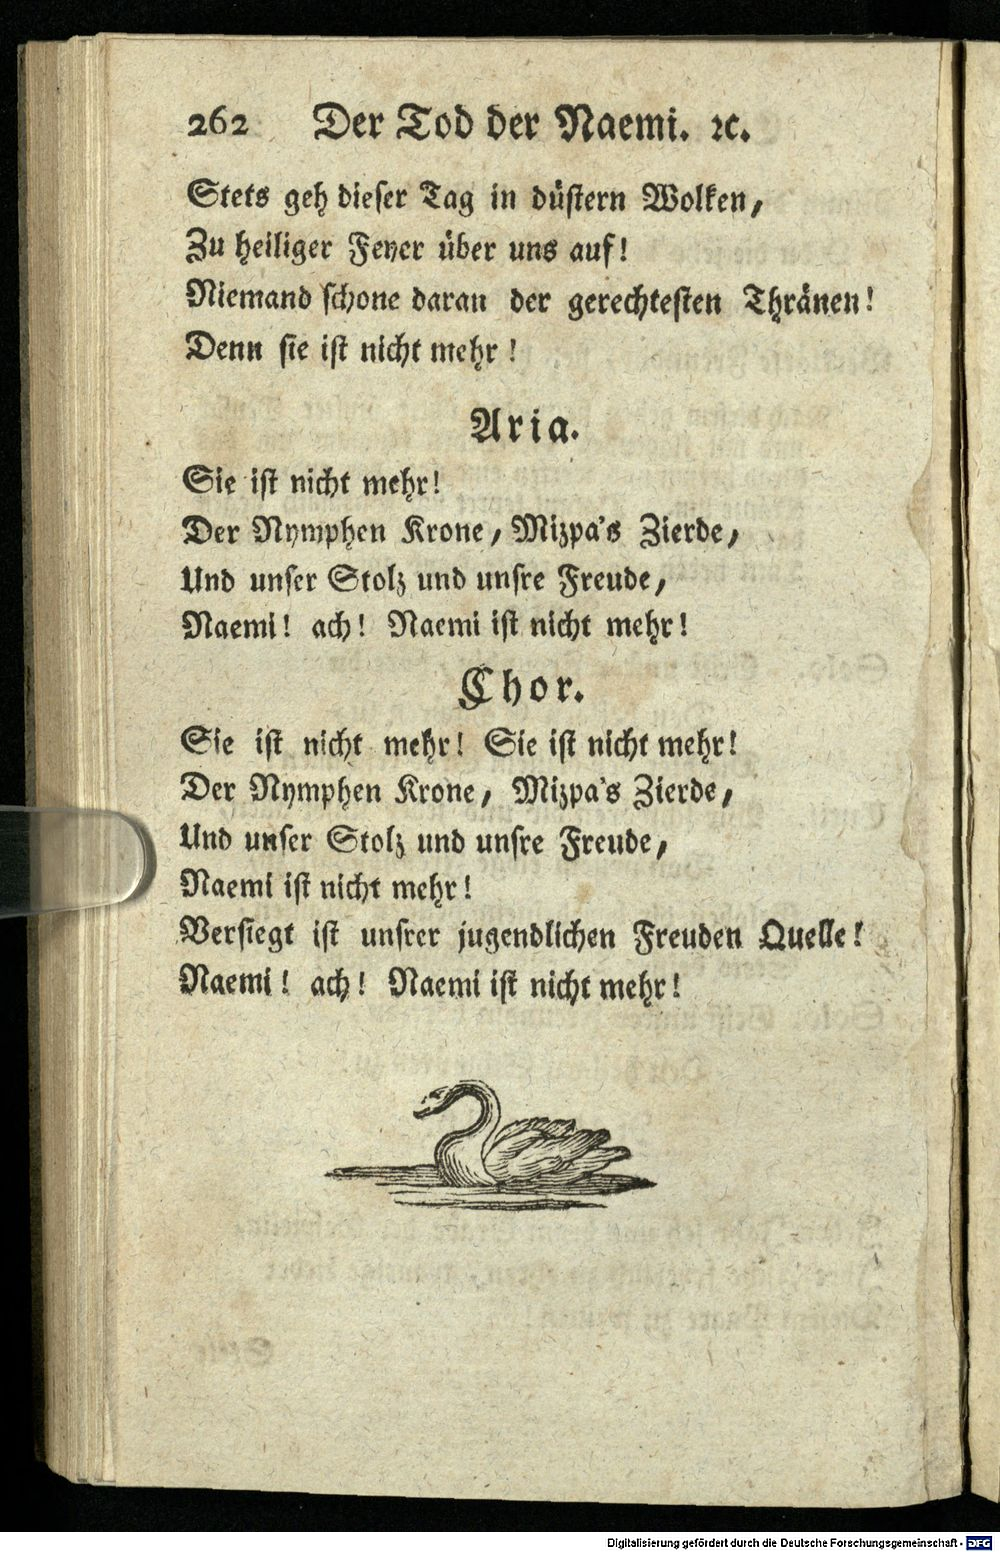 262 Der Tod der Naemi. ꝛc.
Stets geh dieser Tag in düstern Wolken,
Zu heiliger Feyer über uns auf!
Niemand schone daran der gerechtesten Thränen!
Denn sie ist nicht mehr!
Aria.
Sie ist nicht mehr!
Der Nymphen Krone, Mizpa's Zierde,
Und unser Stolz und unsre Freude,
Naemi! ach! Naemi ist nicht mehr!
Chor.
Sie ist nicht mehr! Sie ist nicht mehr!
Der Nymphen Krone, Mizpa's Zierde,
Und unser Stolz und unsre Freude,
Naemi ist nicht mehr!
Versiegt ist unsrer jugendlichen Freuden Quelle!
Naemi! ach! Naemi ist nicht mehr!
Digitalisierung gefördert durch die Deutsche Forschungsgemeinschaft - DFG